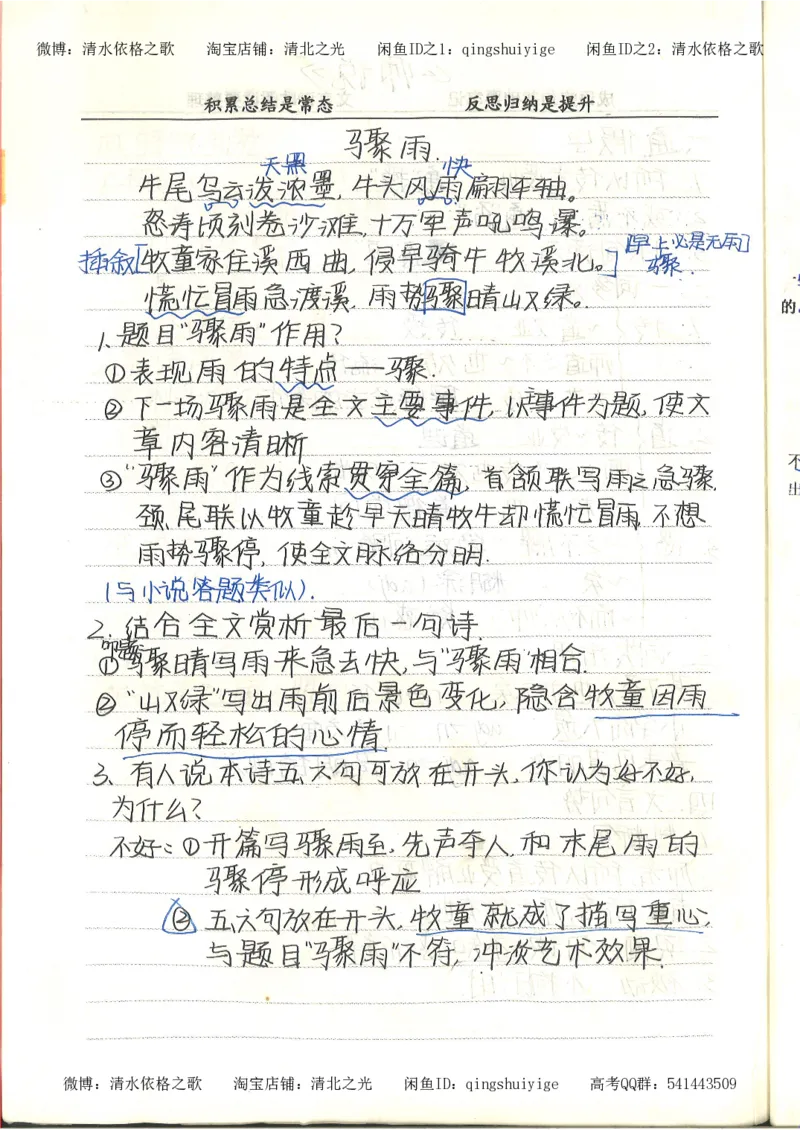 微博：清水依格之歌 淘宝店铺：清北之光 闲鱼ID之1：qingshuiyige 闲鱼ID之2：清水依格之歌
积累总结是常态 反思归纳是提升
骤雨.
天黑 快
牛尾乌云泼浓墨，牛头风雨翻车轴。
怒涛顷刻卷沙滩，十万军声吼鸣瀑。
[早上必是无雨]
插叙[牧童家住溪西曲，侵早骑牛牧溪北。] 骤.
慌忙冒雨急渡溪，雨势骤晴山又绿。
1.题目"骤雨"作用？
①表现雨的特点——骤.
②下一场骤雨是全文主要事件，以事件为题，使文
章内容清晰
③"骤雨"作为线索贯穿全篇，首颔联写雨之急骤，
颈、尾联以牧童趁早天晴牧牛却慌忙冒雨，不想
雨势骤停，使全文脉络分明.
(与小说答题类似).
2.结合全文赏析最后一句诗.
①骤晴写雨来急去快，与"骤雨"相合.
②"山又绿"写出雨前后景色变化，隐含牧童因雨
停而轻松的心情
3.有人说本诗五、六句可放在开头，你认为好不好，
为什么？
不好：①开篇写骤雨至，先声夺人，和末尾雨的
骤停形成呼应
②五、六句放在开头，牧童就成了描写重心；
与题目"骤雨"不符，冲淡艺术效果.
的。
不
出
微博：清水依格之歌 淘宝店铺：清北之光 闲鱼ID：qingshuiyige 高考QQ群：541443509